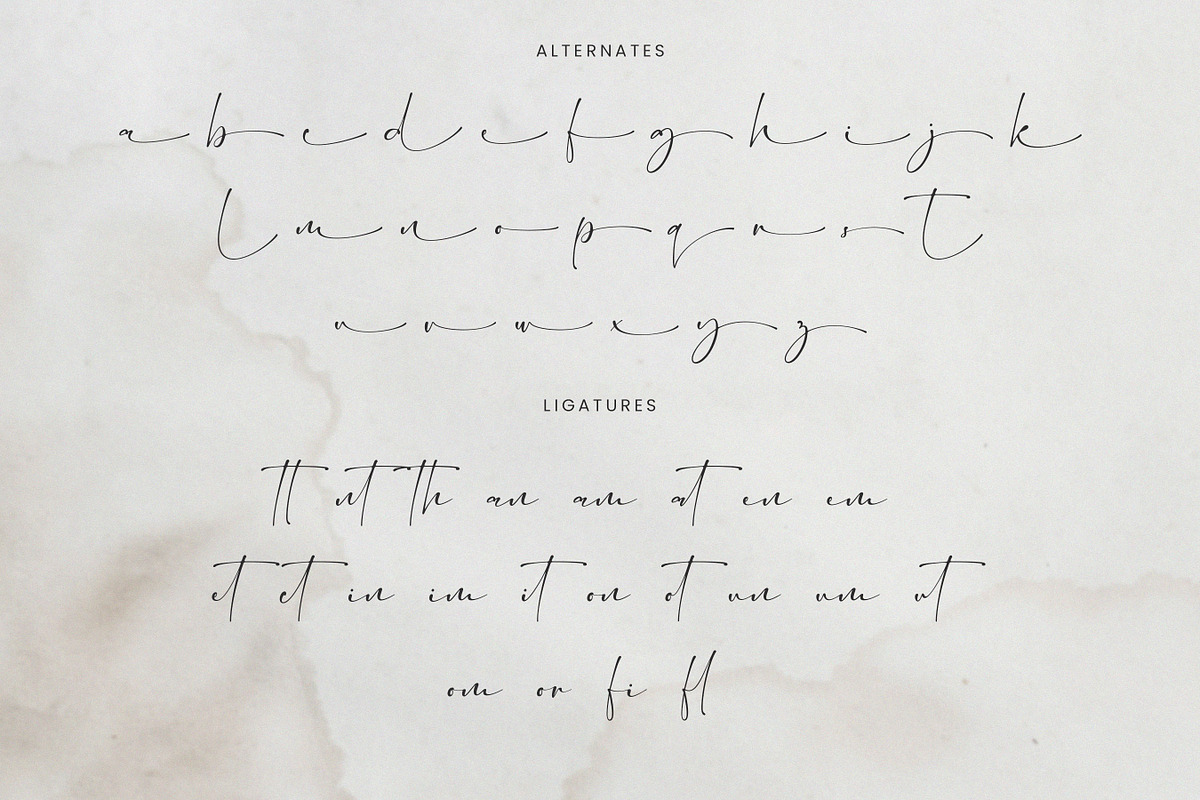 ALTERNATES
a b c d e f g h i j k
l m n o p q r s t
u v w x y z
LIGATURES
tt nt th an am at en em
et et in im it on ot un um ut
om or fi fl